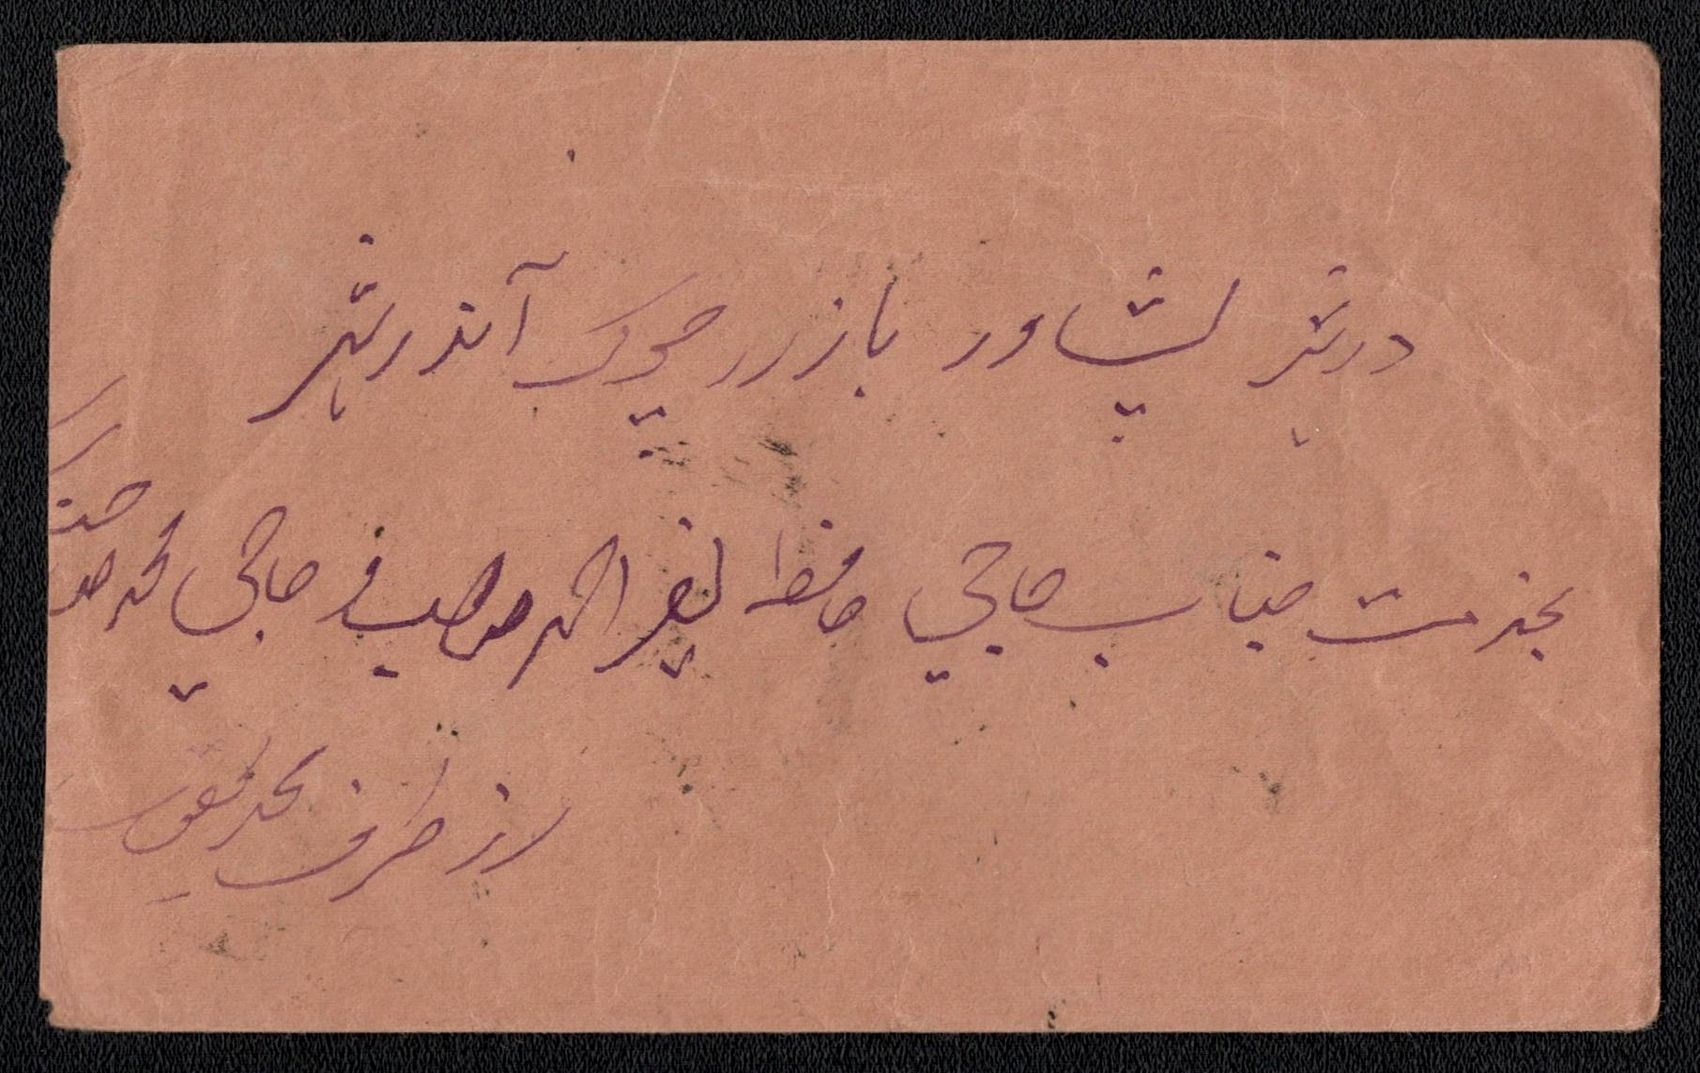 در شہر پشاور بازار چوک آندر شہر
بخدمت جناب حاجی حافظ فقیر احمد صاحب و حاجی محمد
از طرف محمد یعقوب